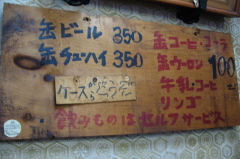 缶ビール 350
缶チューハイ 350
ケースからどうぞ
缶コーヒー・コーラ
缶ウーロン 100
牛乳・コーヒー
リンゴ
飲みものはセルフサービス